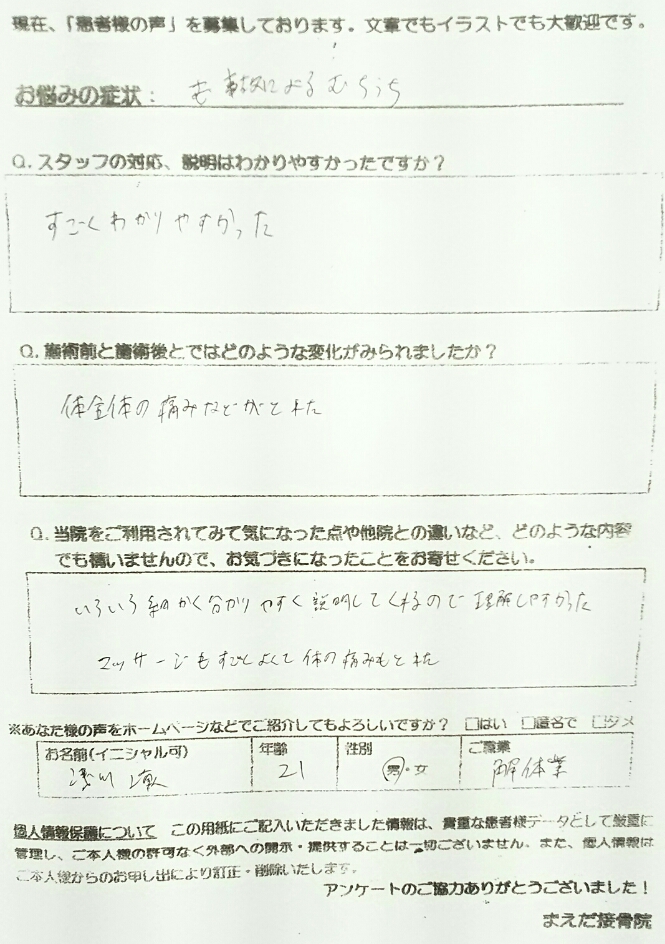 現在、「患者様の声」を募集しております。文章でもイラストでも大歓迎です。
お悩みの症状： 事故によるむちうち
Q. スタッフの対応、説明はわかりやすかったですか？
すごーくわかりやすかった
Q. 施術前と施術後とではどのような変化がみられましたか？
体全体の痛みなどがとれた
Q. 当院をご利用されてみて気になった点や他院との違いなど、どのような内容
でも構いませんので、お気づきになったことをお寄せください。
いろいろ細かく分かりやすく説明してくれるので理解しやすかった
マッサージもすごくよくて体の痛みもとれた
※あなた様の声をホームページなどでご紹介してもよろしいですか？ □はい □匿名で □ダメ
お名前(イニシャル可) 年齢 性別 ご職業
21 男・女 解体業
個人情報保護について この用紙にご記入いただきました情報は、貴重な患者様データとして厳重に
管理し、ご本人様の許可なく外部への開示・提供することは一切ございません。また、個人情報は
ご本人様からのお申し出により訂正・削除いたします。
アンケートのご協力ありがとうございました！
まえだ接骨院